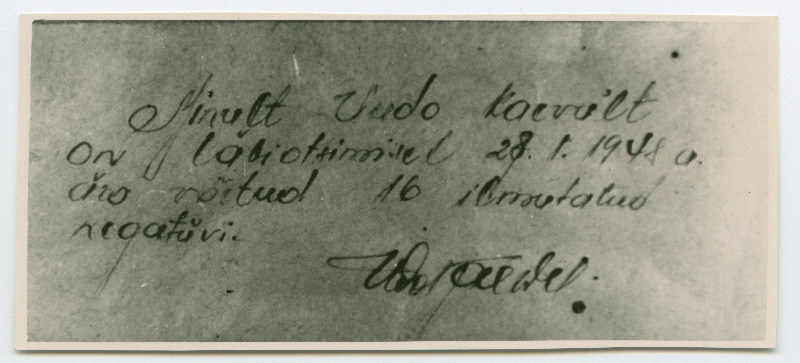 Minult Uudo Kaevult
on läbiotsimisel 28. I. 1948 a.
ära võetud 16 ilmutatud
negatiivi.